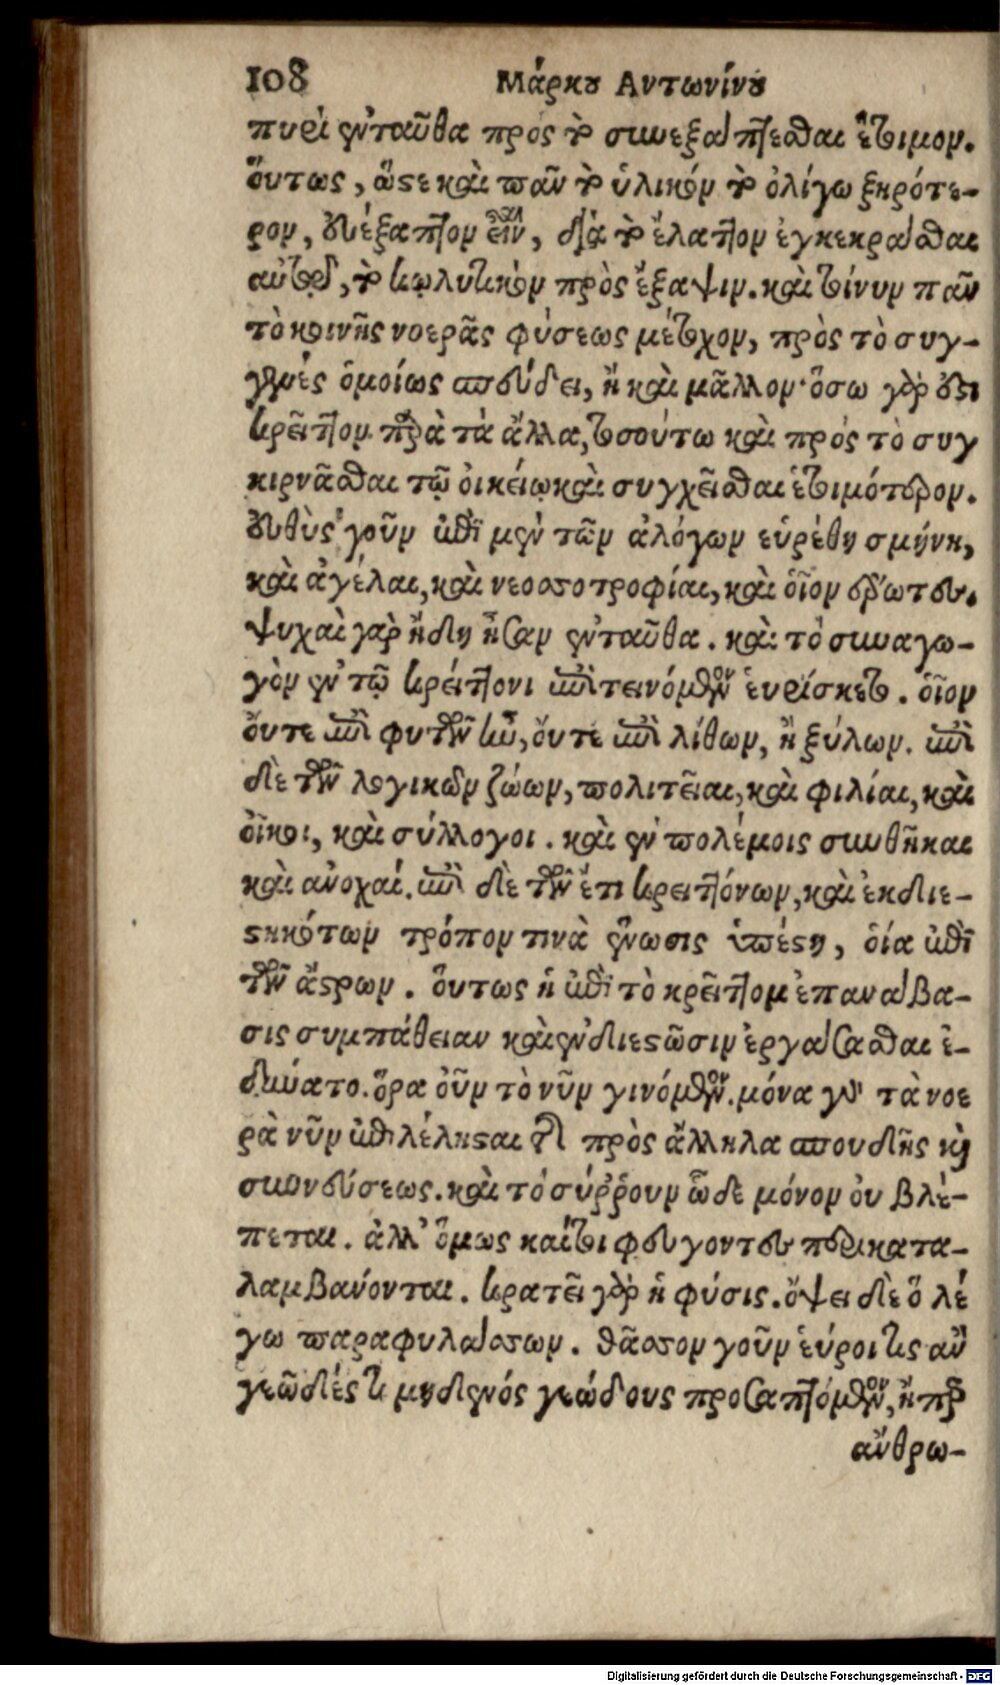 108 Μάρκου Αντωνίνου
πυρὶ ἐνταῦθα πρὸς τὸ συνεξάπτεσθαι ἕτοιμον.
ὅυτως, ὥστε καὶ πᾶν τὸ ὑλικὸν τὸ ὀλίγω ξηρότε-
ρον, ἐυέξαπτον εἶναι, διὰ τὸ ἔλαττον ἐγκεκρᾶσθαι
αὐτῷ, τὸ κωλυτικὸν πρὸς ἔξαψιν. καὶ τοίνυν πᾶν
τὸ κοινῆς νοερᾶς φύσεως μέτοχον, πρὸς τὸ συγ-
γενὲς ὁμοίως σπεύδει, ἢ καὶ μᾶλλον· ὅσω γάρ ἐστι
κρεῖττον παρὰ τὰ ἄλλα, τοσούτω καὶ πρὸς τὸ συγ
κιρνᾶσθαι τῷ ὀικείῳ καὶ συγχεῖσθαι ἑτοιμότερον.
ἐυθὺς γοῦν ἐπὶ μὲν τῶν ἀλόγων εὑρέθη σμήνη,
καὶ ἀγέλαι, καὶ νεοσσοτροφίαι, καὶ ὁῖον ἔρωτες.
ψυχαὶ γὰρ ἤδη ἦσαν ἐνταῦθα. καὶ τὸ συναγω-
γὸν ἐν τῷ κρείττονι ἐπιτεινόμενον ἑυρίσκετο. ὁῖον
ὄυτε ἐπὶ φυτῶν ἦν, ὄυτε ἐπὶ λίθων, ἢ ξύλων. ἐπὶ
δὲ τῶν λογικῶν ζώων, πολιτεῖαι, καὶ φιλίαι, καὶ
ὀῖκοι, καὶ σύλλογοι. καὶ ἐν πολέμοις συνθῆκαι
καὶ ἀνοχαί. ἐπὶ δὲ τῶν ἔτι κρειττόνων, καὶ ἐκ διε-
στηκότων τρόπον τινὰ ἕνωσις ὑπέστη, ὁία ἐπὶ
τῶν ἄστρων. ὅυτως ἡ ἐπὶ τὸ κρεῖττον ἐπανάβα-
σις συμπάθειαν καὶ ἐν διεστῶσιν ἐργάσασθαι ἐ-
δύνατο. ὅρα ὀῦν τὸ νῦν γινόμενον. μόνα γὰρ τὰ νοε
ρὰ νῦν ἐπιλέλησται τῆς πρὸς ἄλληλα σπουδῆς καὶ
συννεύσεως. καὶ τὸ σύῤῥουν ὧδε μόνον ὀυ βλέ-
πεται. ἀλλ' ὅμως καίτοι φεύγοντες περικατα-
λαμβάνονται. κρατεῖ γὰρ ἡ φύσις. ὄψει δὲ ὃ λέ
γω παραφυλάσσων. θᾶσσον γοῦν ἑύροι τις ἂν
γεῶδές τι μηδενὸς γεώδους προσαπτόμενον, ἤπερ
ἄνθρω-
Digitalisierung gefördert durch die Deutsche Forschungsgemeinschaft - DFG